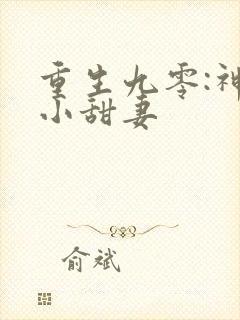 重生九零:神
小甜妻
俞斌